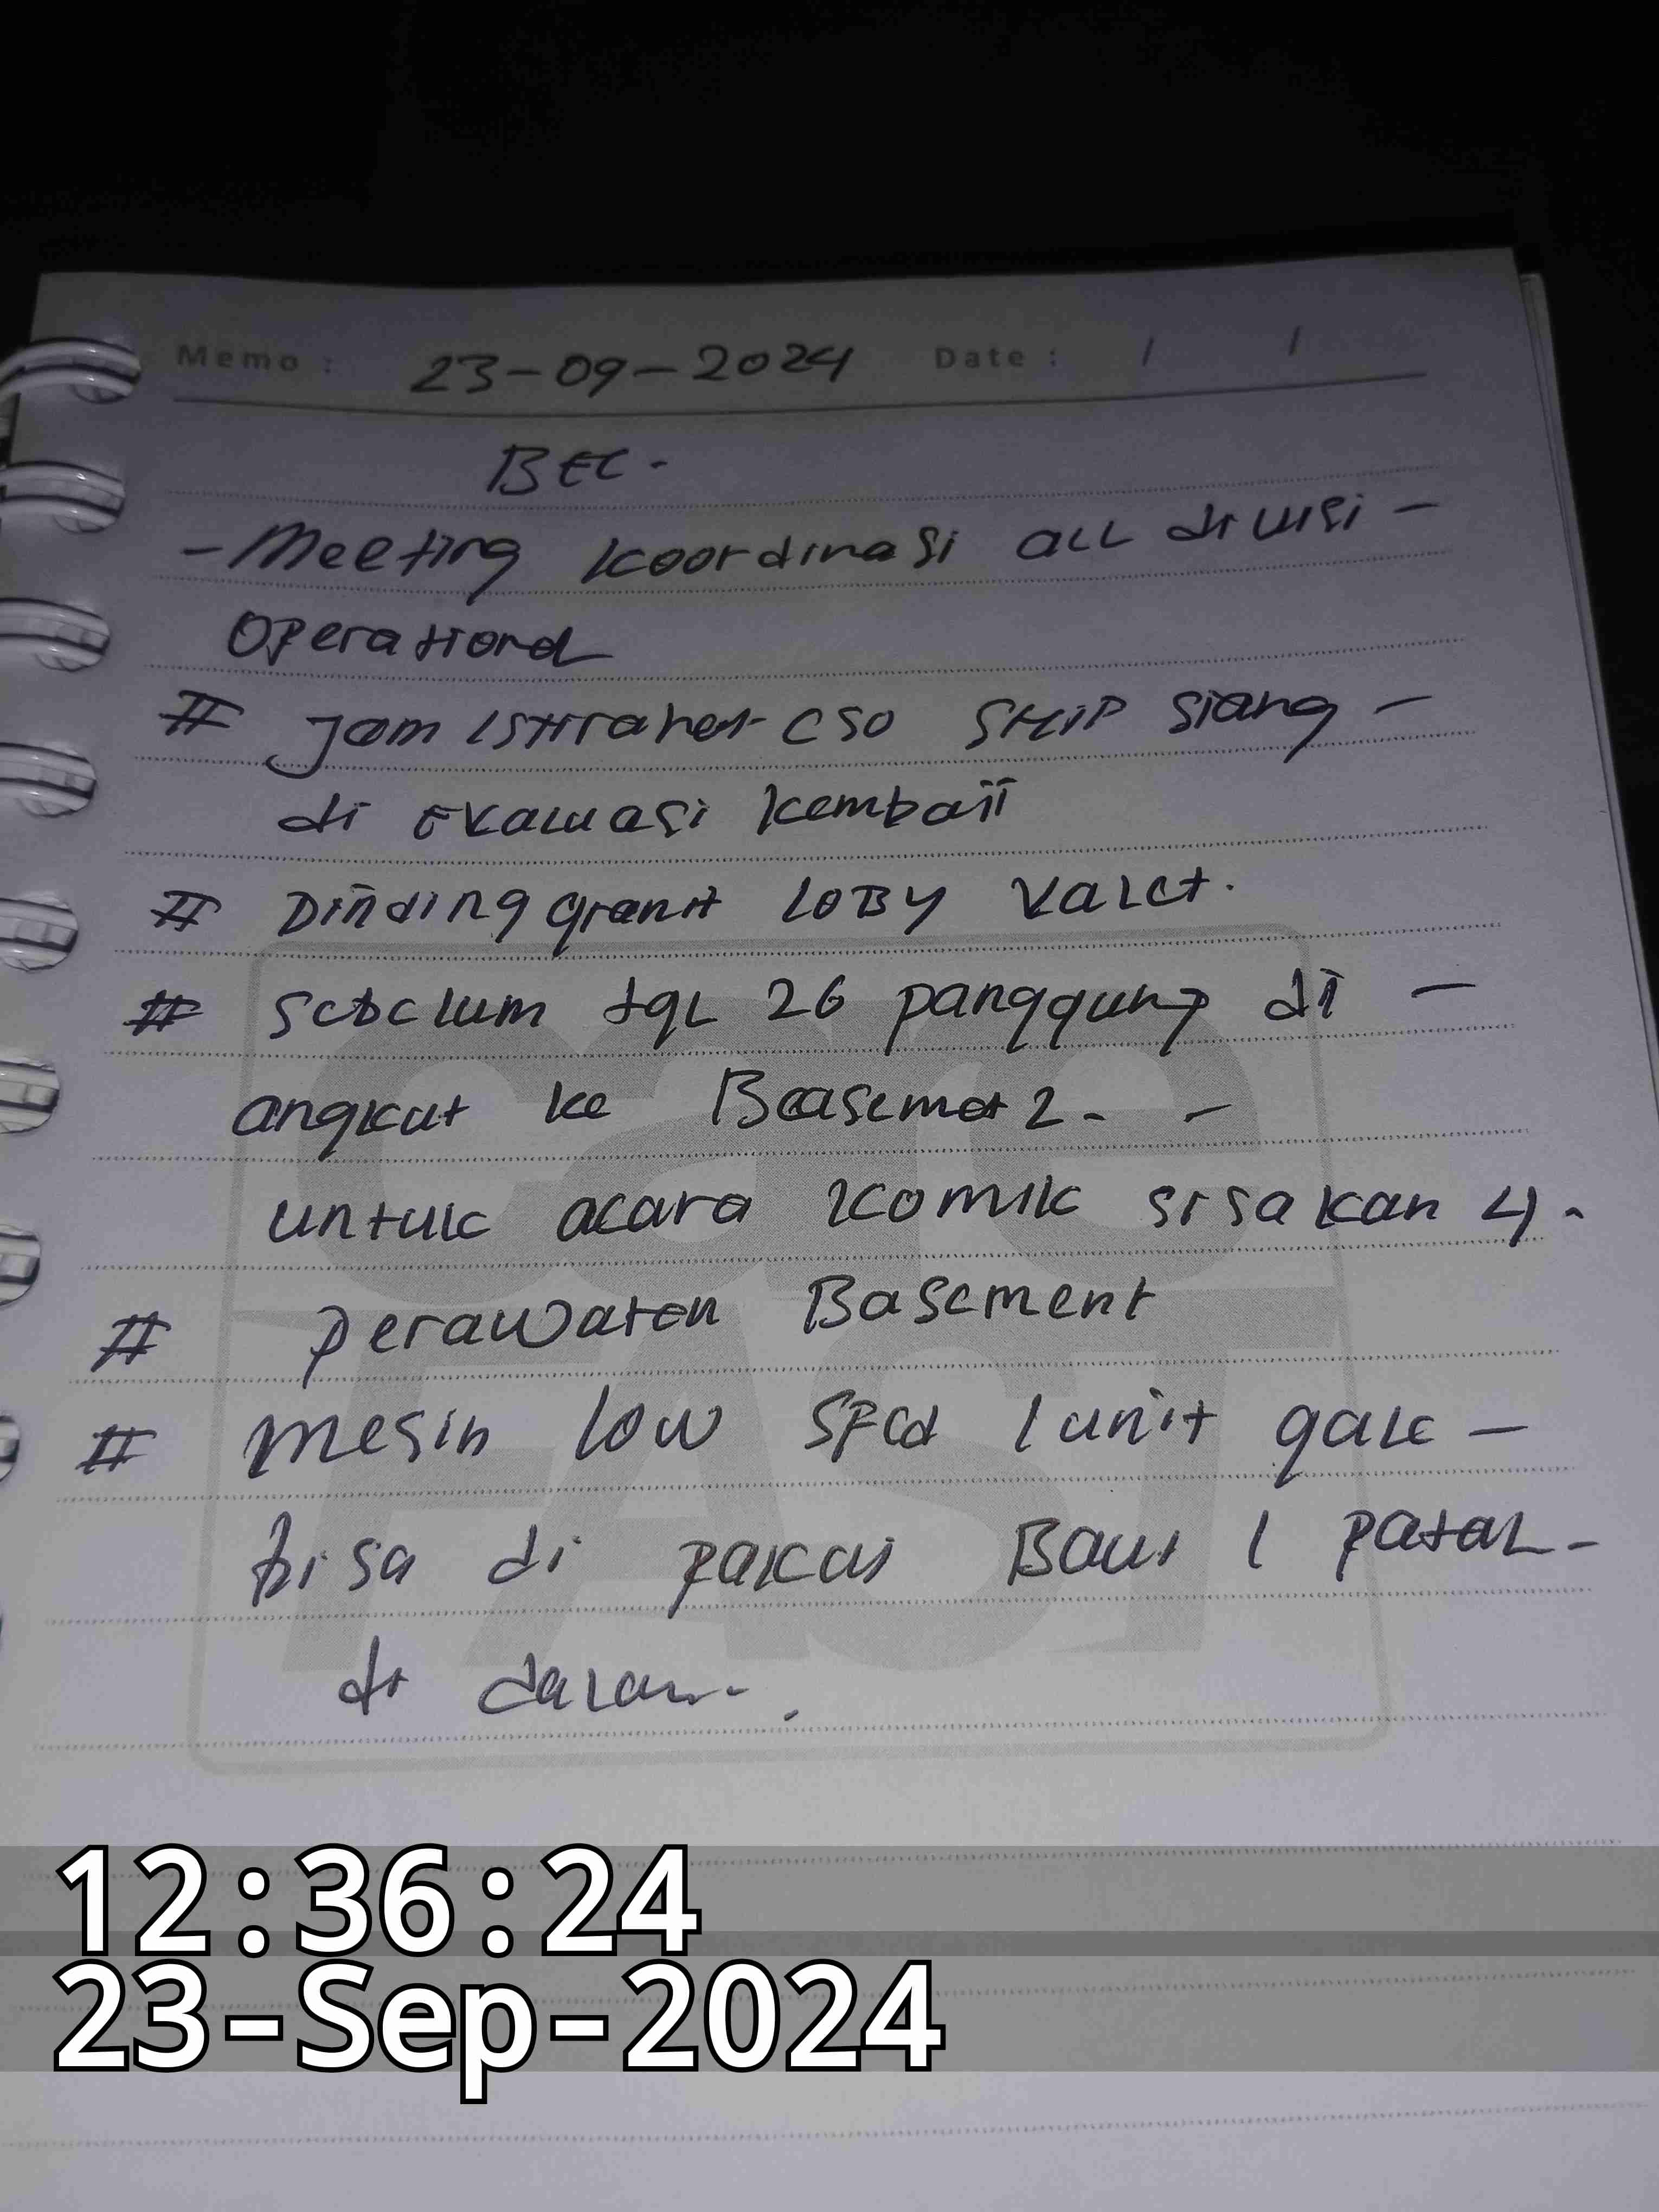 Memo : 23-09-2024 Date : / /
BEC -
- Meeting koordinasi all divisi -
Operational
# Jam istirahat CSO SHIP siang -
di Evaluasi kembali
# Dinding granit LOBY Valet.
# Sebelum tgl 26 panggung di -
angkut ke Basemet 2 - -
untuk acara komik sisakan 4.
# perawatan Basement
# mesin low sped 1 unit gak -
bisa di pakai Baut 1 patal -
di dalam.
care
FAST
12:36:24
23-Sep-2024